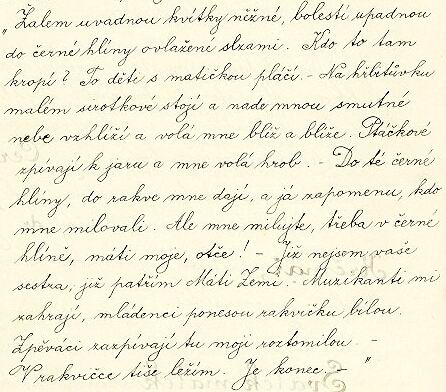 „Žalem uvadnou kvítky něžné, bolestí upadnou
do černé hlíny ovlaženi slzami. Kdo to tam
kropí? To děti s matičkou pláčí. – Na hřbitůvku
malém sirotkové stojí a nade mnou smutné
nebe vzhlíží a volá mne blíž a blíže. Ptáčkové
zpívají k jaru a mne volá hrob. – Do té černé
hlíny, do rakve mne dají, a já zapomenu, kdo
mne milovali. Ale mne milujte, třeba v černé
hlíně, máti moje, otče! – Již nejsem vaše
sestra, již patřím Máti Zemi. Muzikanti mi
zahrají, mládenci ponesou rakvičku bílou.
Zpěváci zazpívají tu moji roztomilou. –
V rakvičce tiše ležím. Je konec – "